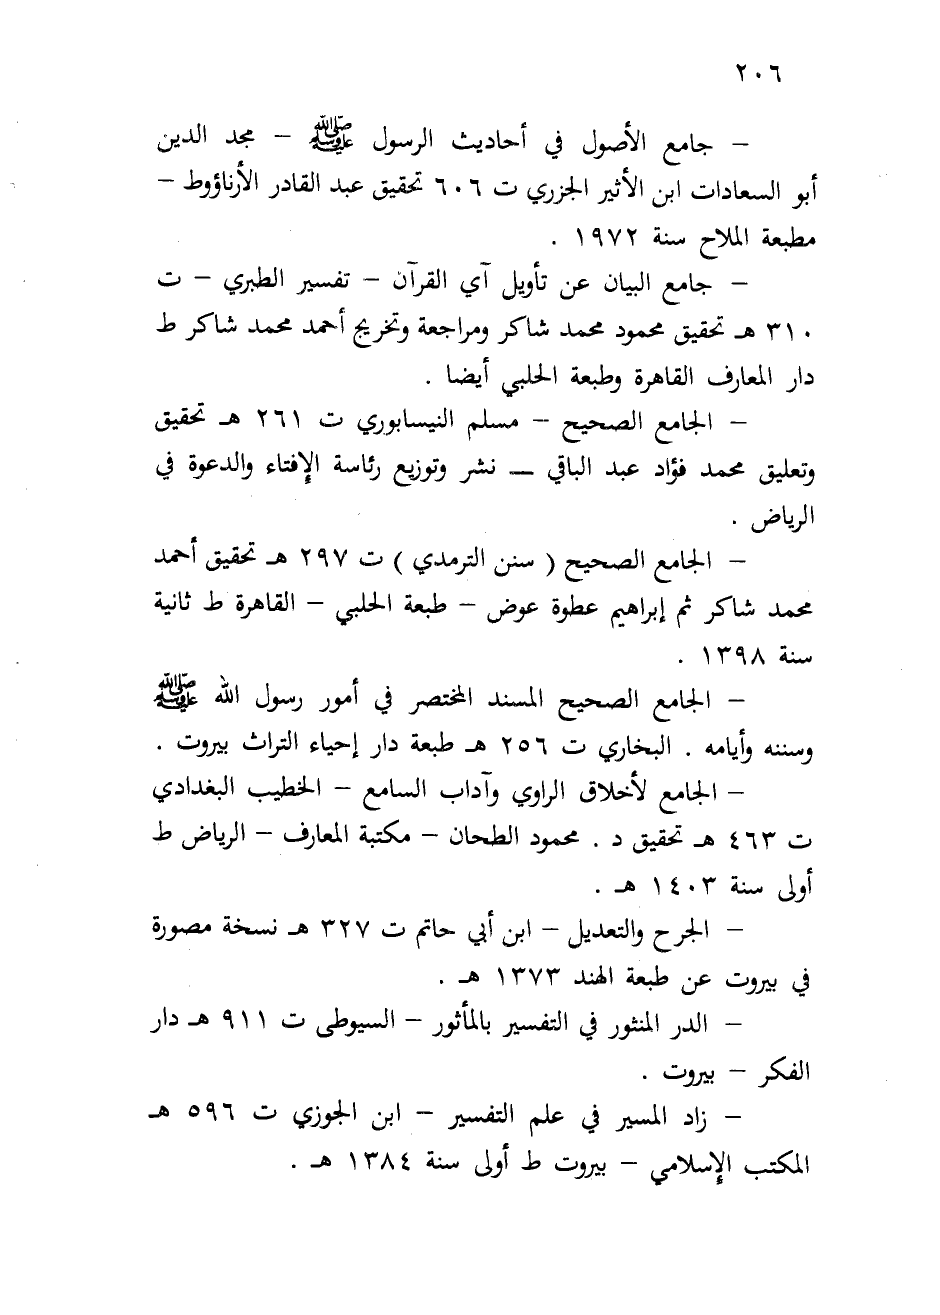 ٢٠٦
– جامع الأصول في أحاديث الرسول ﷺ – مجد الدين
أبو السعادات ابن الأثير الجزري ت ٦٠٦ تحقيق عبد القادر الأرناؤوط –
مطبعة الملاح سنة ١٩٧٢ .
– جامع البيان عن تأويل آي القرآن – تفسير الطبري – ت
٣١٠ هـ تحقيق محمود محمد شاكر ومراجعة وتخريج أحمد محمد شاكر ط
دار المعارف القاهرة وطبعة الحلبي أيضا .
– الجامع الصحيح – مسلم النيسابوري ت ٢٦١ هـ تحقيق
وتعليق محمد فؤاد عبد الباقي — نشر وتوزيع رئاسة الإفتاء والدعوة في
الرياض .
– الجامع الصحيح ( سنن الترمدي ) ت ٢٩٧ هـ تحقيق أحمد
محمد شاكر ثم إبراهيم عطوة عوض – طبعة الحلبي – القاهرة ط ثانية
سنة ١٣٩٨ .
– الجامع الصحيح المسند المختصر في أمور رسول الله ﷺ
وسننه وأيامه . البخاري ت ٢٥٦ هـ طبعة دار إحياء التراث بيروت .
– الجامع لأخلاق الراوي وآداب السامع – الخطيب البغدادي
ت ٤٦٣ هـ تحقيق د . محمود الطحان – مكتبة المعارف – الرياض ط
أولى سنة ١٤٠٣ هـ .
– الجرح والتعديل – ابن أبي حاتم ت ٣٢٧ هـ نسخة مصورة
في بيروت عن طبعة الهند ١٣٧٣ هـ .
– الدر المنثور في التفسير بالمأثور – السيوطى ت ٩١١ هـ دار
الفكر – بيروت .
– زاد المسير في علم التفسير – ابن الجوزي ت ٥٩٦ هـ
المكتب الإسلامي – بيروت ط أولى سنة ١٣٨٤ هـ .